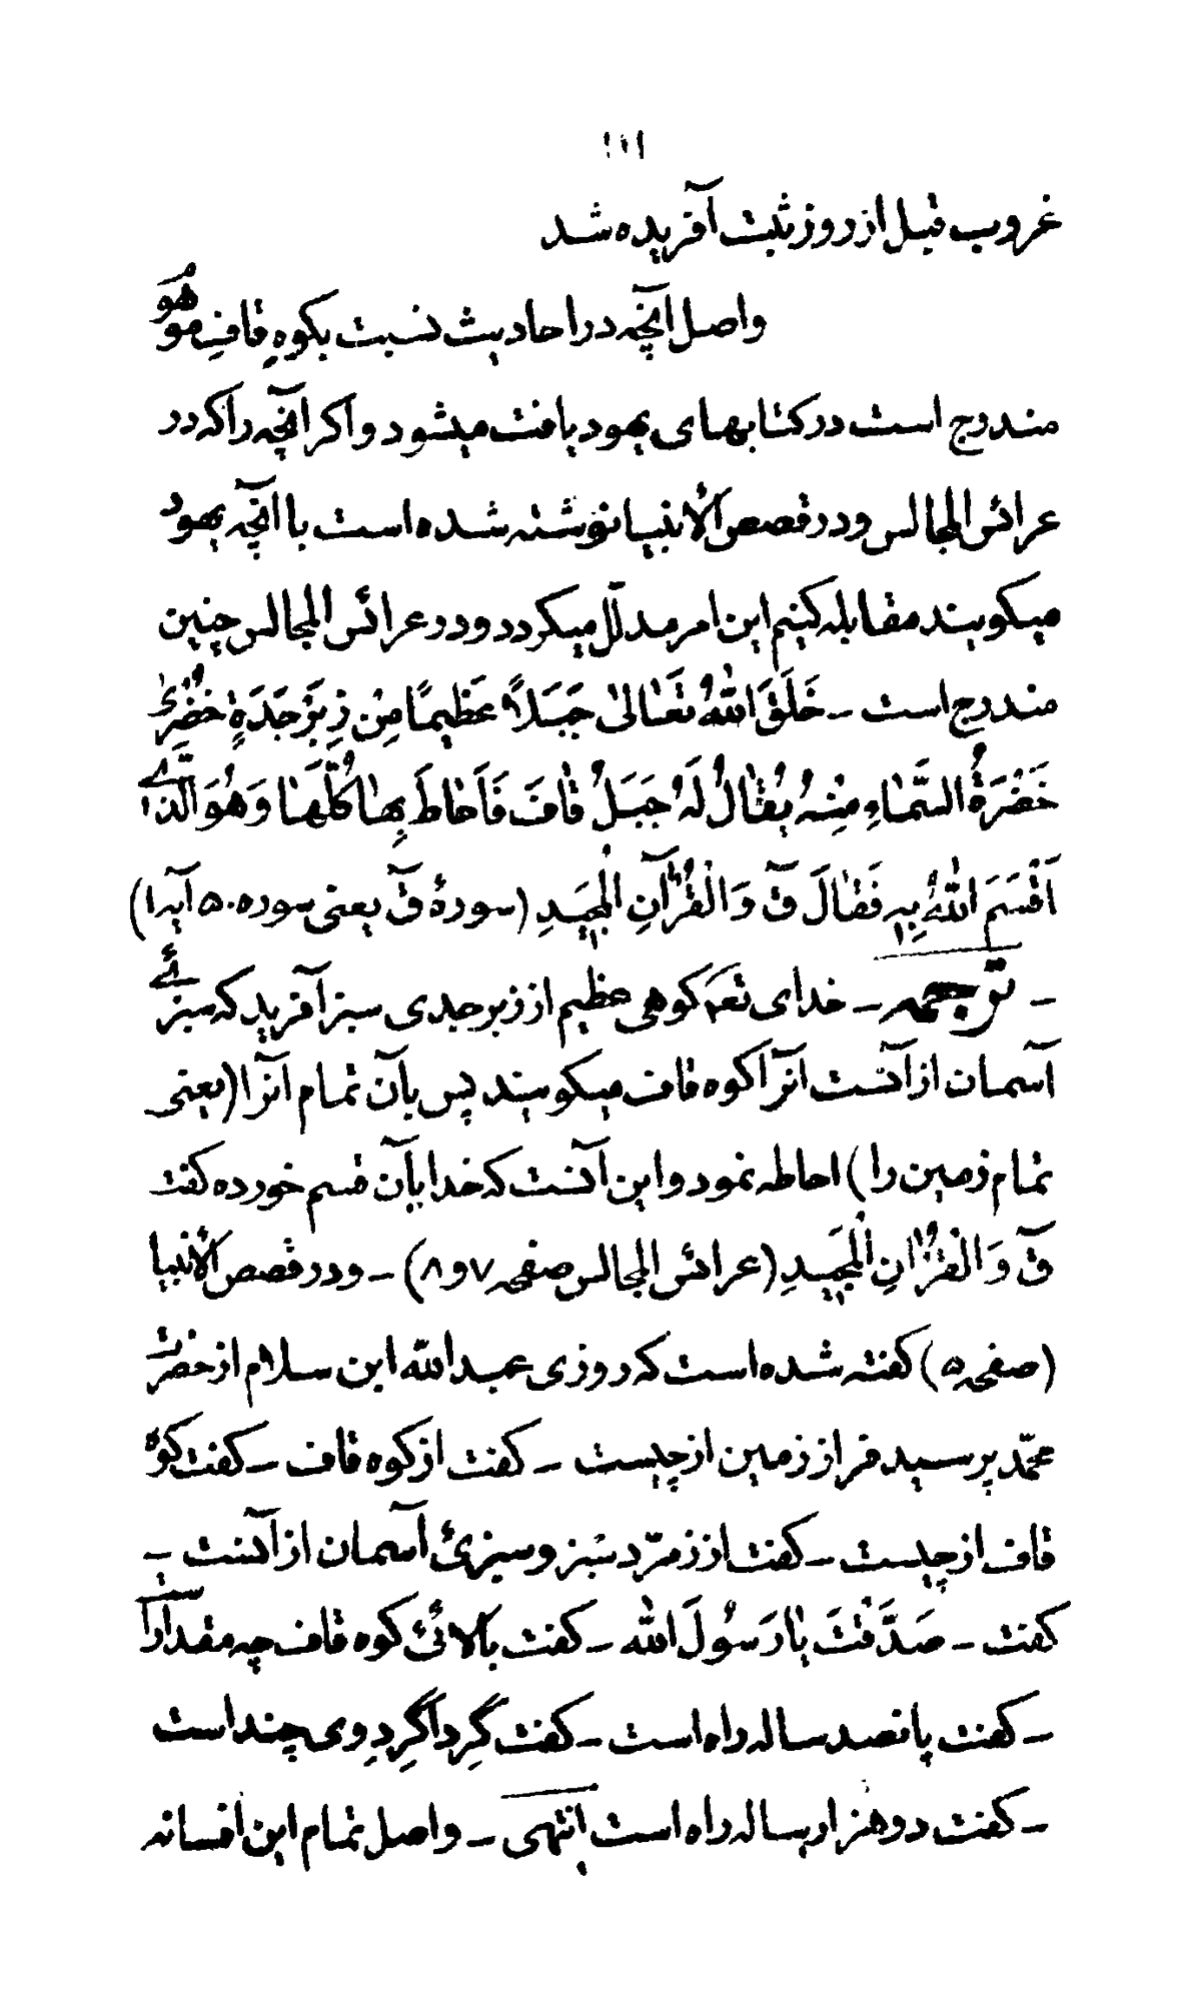 ۱۱۱
غروب قبل از روز ثبت آفریده شد
و اصل آنچه در احادیث نسبت بکوهِ قافِ موهو
مندرج است در کتابهای یهود یافت میشود و اکر آنچه را که در
عرائس المجالس و در قصص الأنبیا نوشته شده است با آنچه یهود
میکویند مقابله کنیم این امر مدلّل میکردد و در عرائس المجالس چنین
مندرج است – خَلَقَ اللهُ تَعَالیٰ جَبَلاً عَظِیمًا مِنْ زِبَرْجَدَةٍ خَضْرَیٰ
خَضْرَةُ السَّمَاءِ مِنْهُ یُقَالُ لَهُ جَبَلُ قَافَ فَاَحَاطَ بِهَا کُلَّهَا وَهُوَ الَّذِے
اَقْسَمَ اللهُ بِهِ فَقَالَ قٓ وَالْقُرْآنِ الْمَجِیدِ (سورهٔ قٓ یعنی سوره ۵۰ آیه ۱)
– ترجمه – خدای تعم کوهی عظیم از زبرجدی سبز آفرید که سبزئے
آسمان از آنست آنرا کوه قاف میکویند پس بآن تمام آنرا (یعنی
تمام زمین را) احاطه نمود و این آنست که خدا بآن قسم خورده کفت
قٓ وَالْقُرْانِ الْمَجِیدِ (عرائس المجالس صفحه ۷ و ۸) – و در قصص الأنبیا
(صفحه ۵) کفته شده است که روزی عبد الله ابن سلام از حضرت
محمّد پرسید فراز زمین از چیست – کفت از کوه قاف – کفت کوه
قاف از چیست – کفت از زمرّد سبز و سبزئ آسمان از آنست –
کفت – صَدَّقْتَ یَا رَسُولَ الله – کفت بالائئ کوه قاف چه مقدار است
– کفت پانصد ساله راه است – کفت گِرداگِردِ وی چند است
– کفت دو هزار ساله راه است انتهی – و اصل تمام این افسانه